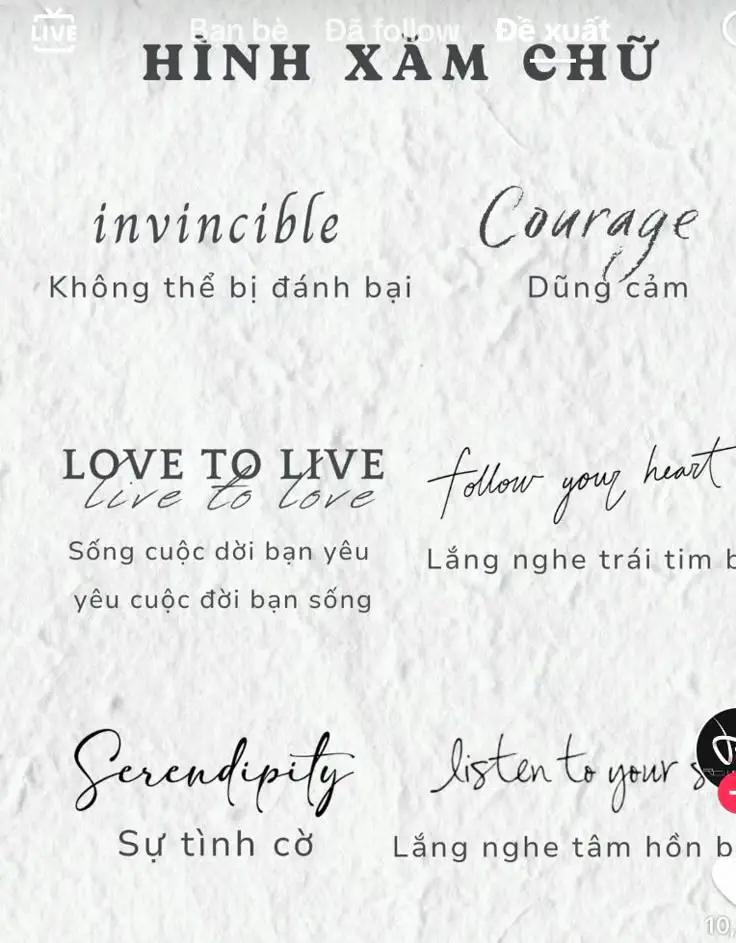 LIVE Bạn bè Đã follow Đề xuất
HÌNH XĂM CHỮ
invincible
Không thể bị đánh bại
Courage
Dũng cảm
LOVE TO LIVE
live to love
Sống cuộc dời bạn yêu
yêu cuộc đời bạn sống
follow your heart
Lắng nghe trái tim b
Serendipity
Sự tình cờ
listen to your s
Lắng nghe tâm hồn b
10,